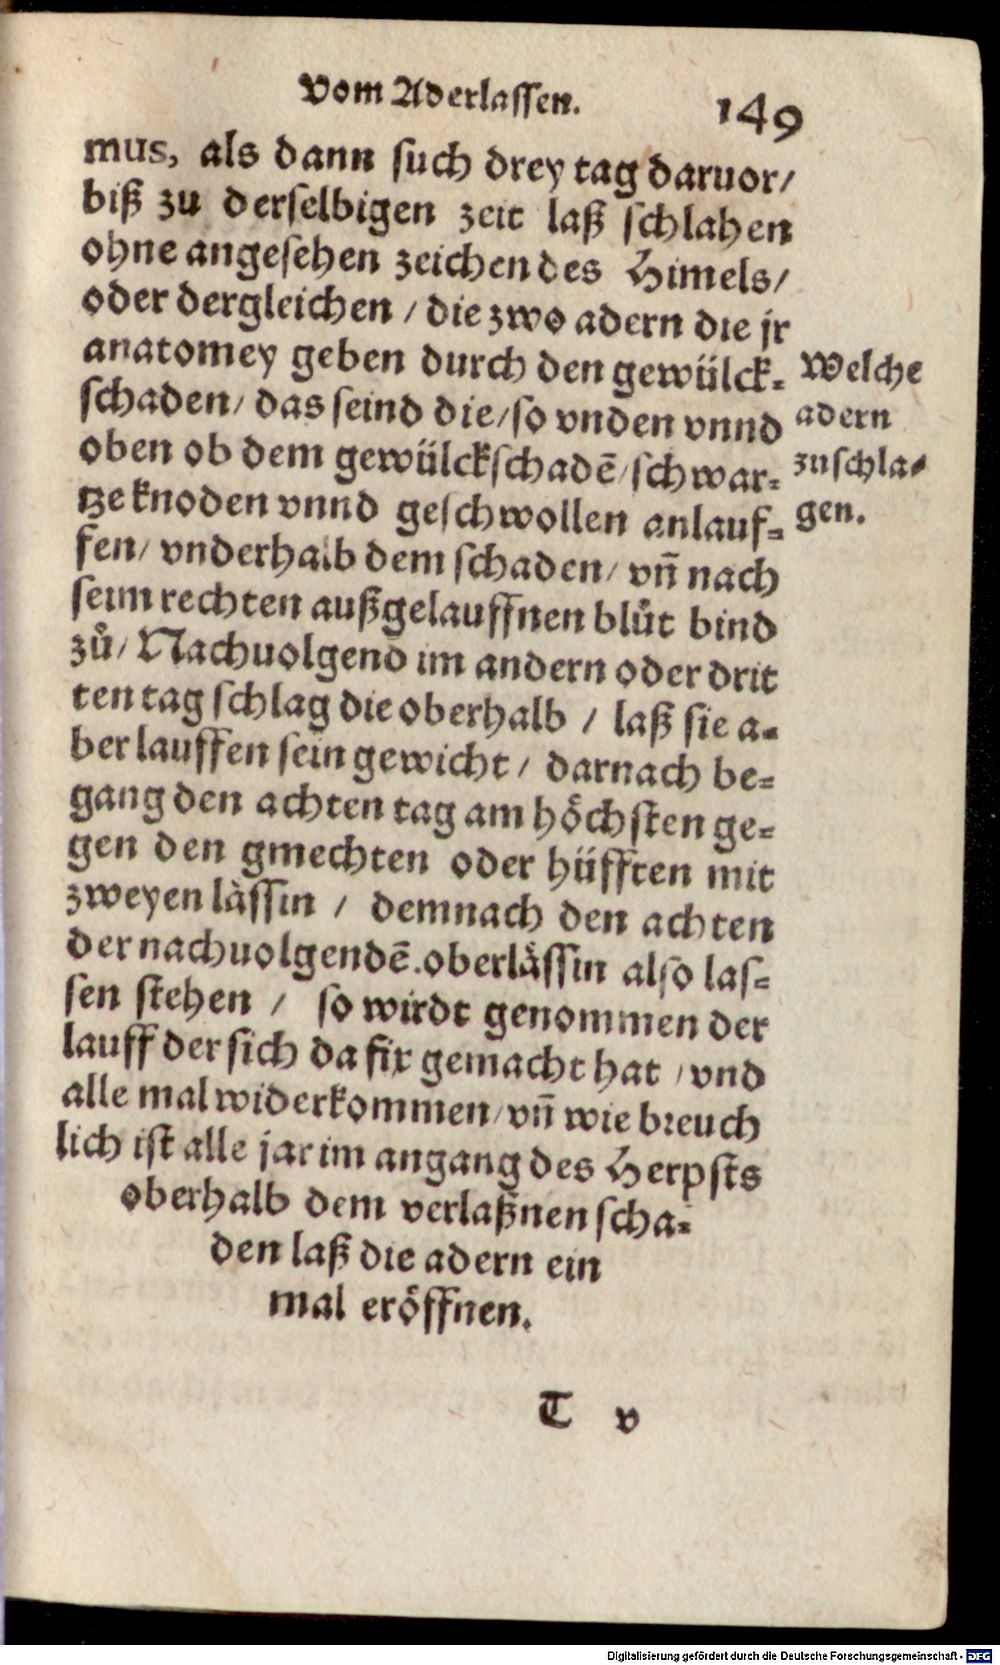 Vom Aderlassen. 149
mus, als dann such drey tag daruor/
biß zu derselbigen zeit laß schlahen
ohne angesehen zeichen des Himels/
oder dergleichen / die zwo adern die jr
anatomey geben durch den gewülck-
schaden/ das seind die/ so vnden vnnd
oben ob dem gewülckschadẽ/ schwar-
tze knoden vnnd geschwollen anlauf-
fen/ vnderhalb dem schaden/ vñ nach
seim rechten außgelauffnen blůt bind
zů/ Nachuolgend im andern oder drit
ten tag schlag die oberhalb / laß sie a-
ber lauffen sein gewicht / darnach be-
gang den achten tag am höchsten ge-
gen den gmechten oder hüfften mit
zweyen lässin / demnach den achten
der nachuolgendẽ. oberlässin also las-
sen stehen / so wirdt genommen der
lauff der sich da fix gemacht hat / vnd
alle mal widerkommen/ vñ wie breuch
lich ist alle jar im angang des Herpsts
oberhalb dem verlaßnen scha-
den laß die adern ein
mal eröffnen.
Welche
adern
zuschla-
gen.
T v
Digitalisierung gefördert durch die Deutsche Forschungsgemeinschaft - DFG